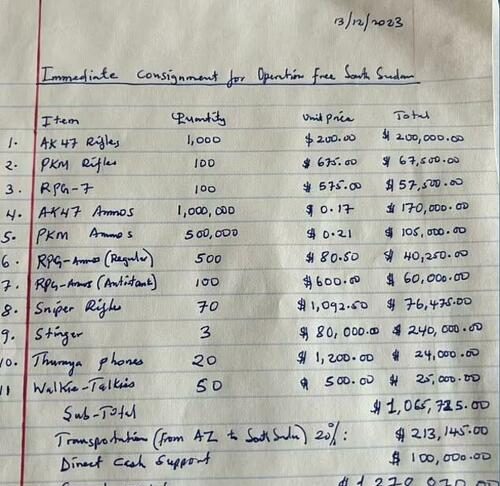 13/12/2023
Immediate Consignment for Operation Free South Sudan
Item Quantity Unit Price Total
1. AK47 Rifles 1,000 $200.00 $200,000.00
2. PKM Rifles 100 $675.00 $67,500.00
3. RPG-7 100 $575.00 $57,500.00
4. AK47 Ammos 1,000,000 $0.17 $170,000.00
5. PKM Ammos 500,000 $0.21 $105,000.00
6. RPG-Ammo (Regular) 500 $80.50 $40,250.00
7. RPG-Ammos (Antitank) 100 $600.00 $60,000.00
8. Sniper Rifles 70 $1,092.50 $76,475.00
9. Stinger 3 $80,000.00 $240,000.00
10. Thuraya phones 20 $1,200.00 $24,000.00
11 Walkie-Talkies 50 $500.00 $25,000.00
Sub-Total $1,065,725.00
Transportation (from AZ to South Sudan) 20%: $213,145.00
Direct Cash Support $100,000.00